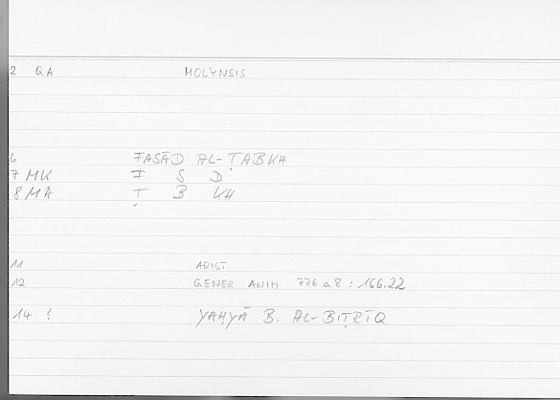 2 QA MOLYNSIS
6 FASĀD AL-ṬABKH
7 MK F S D
8 MA Ṭ B KH
11 ARIST
12 GENER ANIM 776 a 8 : 166.22
14 ? YAḤYĀ B. AL-BIṬRĪQ